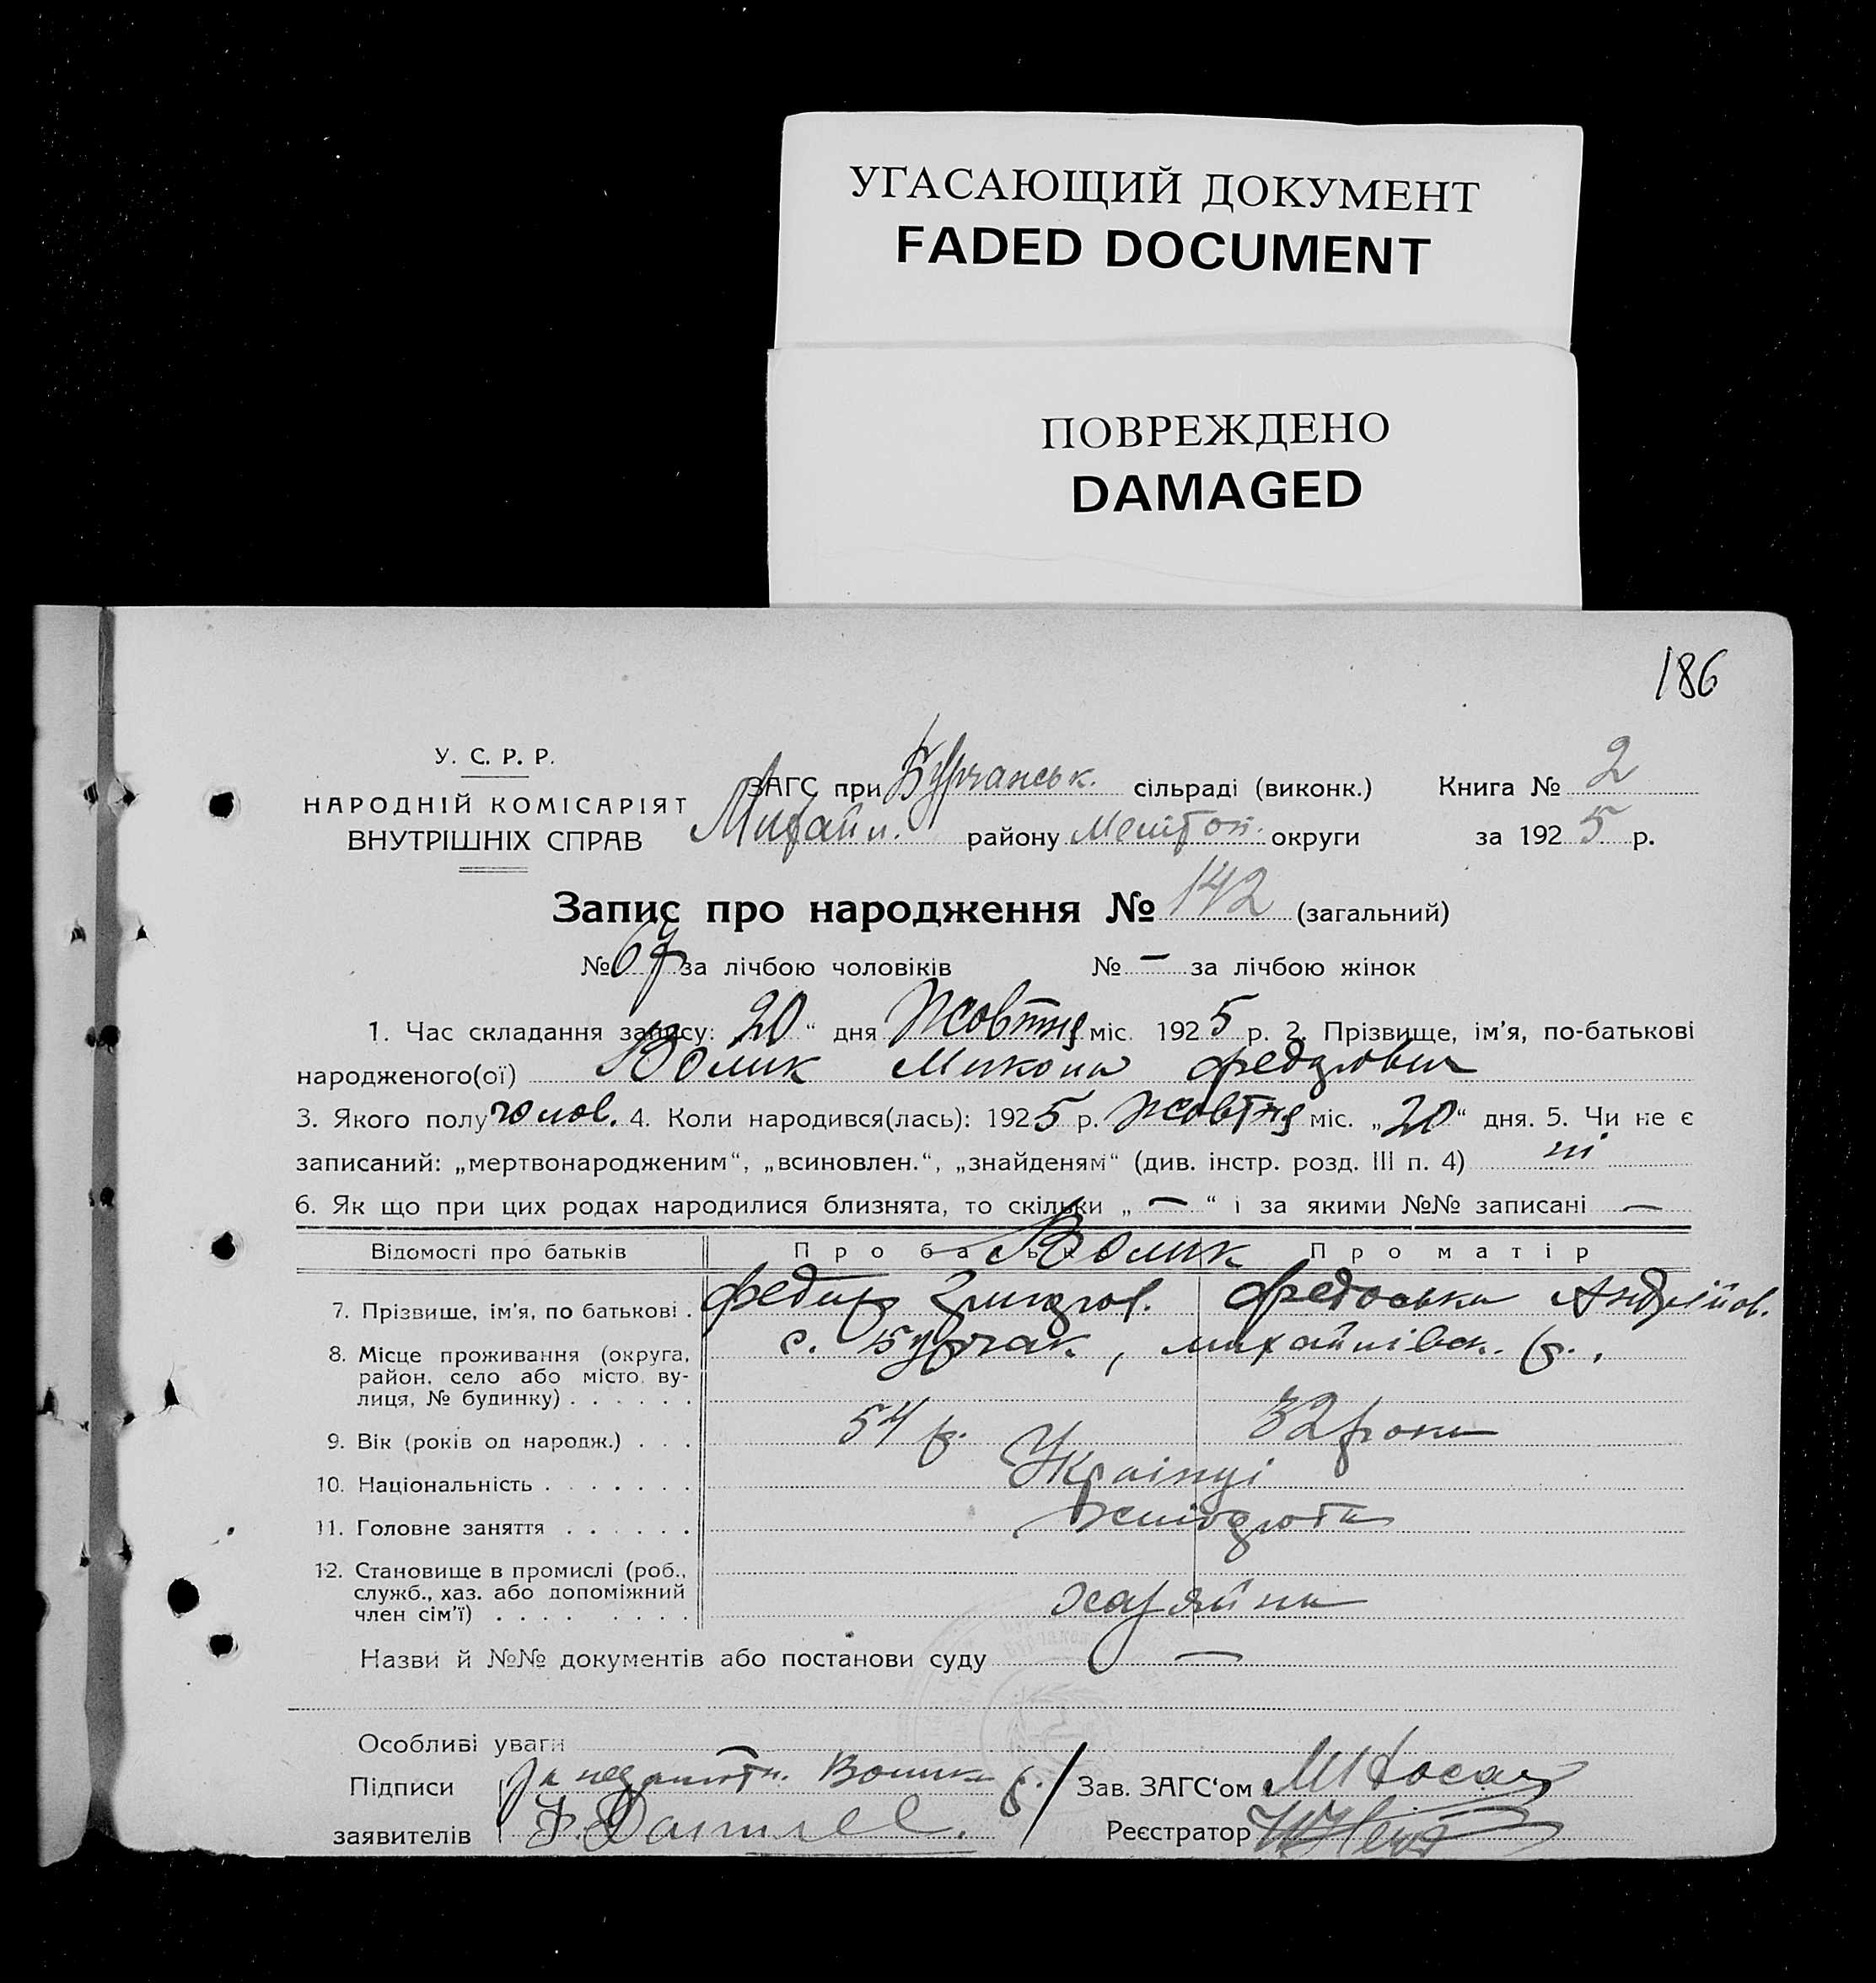 УГАСАЮЩИЙ ДОКУМЕНТ
FADED DOCUMENT
ПОВРЕЖДЕНО
DAMAGED
186
У. С. Р. Р.
НАРОДНІЙ КОМІСАРІЯТ
ВНУТРІШНІХ СПРАВ
ЗАГС при Бурчанськ. сільраді (виконк.) Книга № 2
Михайл. району Меліт округи за 1925 р.
Запис про народження № 142 (загальний)
№ 67 за лічбою чоловіків № — за лічбою жінок
1. Час складання запису: 20 “ дня Жовтня міс. 1925 р. 2. Прізвище, ім’я, по-батькові
народженого(ої) Волик Микола Федорович
3. Якого полу чолов. 4. Коли народився(лась): 1925 р. Жовтня міс. „20“ дня. 5. Чи не є
записаний: „мертвонародженим“, „всиновлен.“, „знайденям“ (див. інстр. розд. III п. 4) ні
6. Як що при цих родах народилися близнята, то скільки „ — “ і за якими №№ записані —
Відомості про батьків Про батька Волик Про матір
7. Прізвище, ім’я, по батькові . Федір Григоров. Федоська Андрійов.
8. Місце проживання (округа, с. Бурчак, михайлівск. р.
район, село або місто, ву-
лиця, № будинку) . . . . . .
9. Вік (років од народж.) . . . 54 р. 32 роки
10. Національність . . . . . . . Українці
11. Головне заняття . . . . . . хліборота
12. Становище в промислі (роб.,
служб., хаз. або допоміжний хазяйка
член сім’ї) . . . . . . . . .
Назви й №№ документів або постанови суду —
Особливі уваги —
Підписи За неграмотн. Волик Зав. ЗАГС‘ом МНосач
заявителів Реєстратор